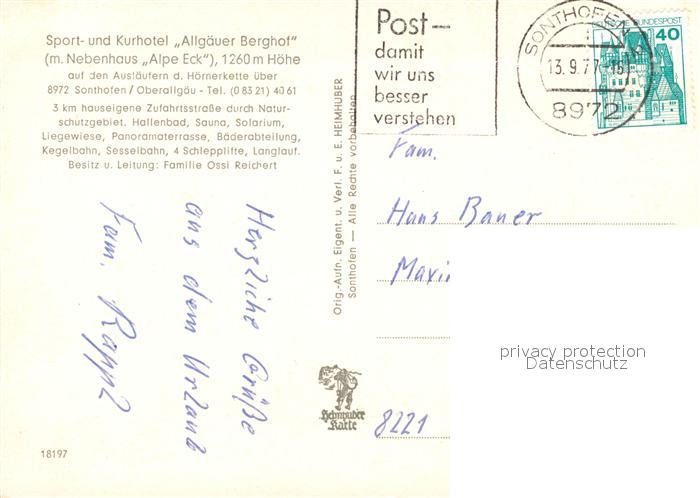 Sport- und Kurhotel „Allgäuer Berghof"
(m. Nebenhaus „Alpe Eck"), 1260 m Höhe
auf den Ausläufern d. Hörnerkette über
8972 Sonthofen / Oberallgäu - Tel. (0 83 21) 40 61
3 km hauseigene Zufahrtsstraße durch Natur-
schutzgebiet. Hallenbad, Sauna, Solarium,
Liegewiese, Panoramaterrasse, Bäderabteilung,
Kegelbahn, Sesselbahn, 4 Schlepplifte, Langlauf.
Besitz u. Leitung: Familie Ossi Reichert
Herzliche Grüße
aus dem Urlaub
Fam.
18197
Orig.-Aufn. Eigent. u. Verl. F. u. E. HEIMHUBER
Sonthofen — Alle Rechte vorbehalten
Heimhuber
Karte
Post-
damit
wir uns
besser
verstehen
SONTHOFEN
13.9.77
8972
BUNDESPOST
40
Fam.
Hans Bauer
8221
privacy protection
Datenschutz